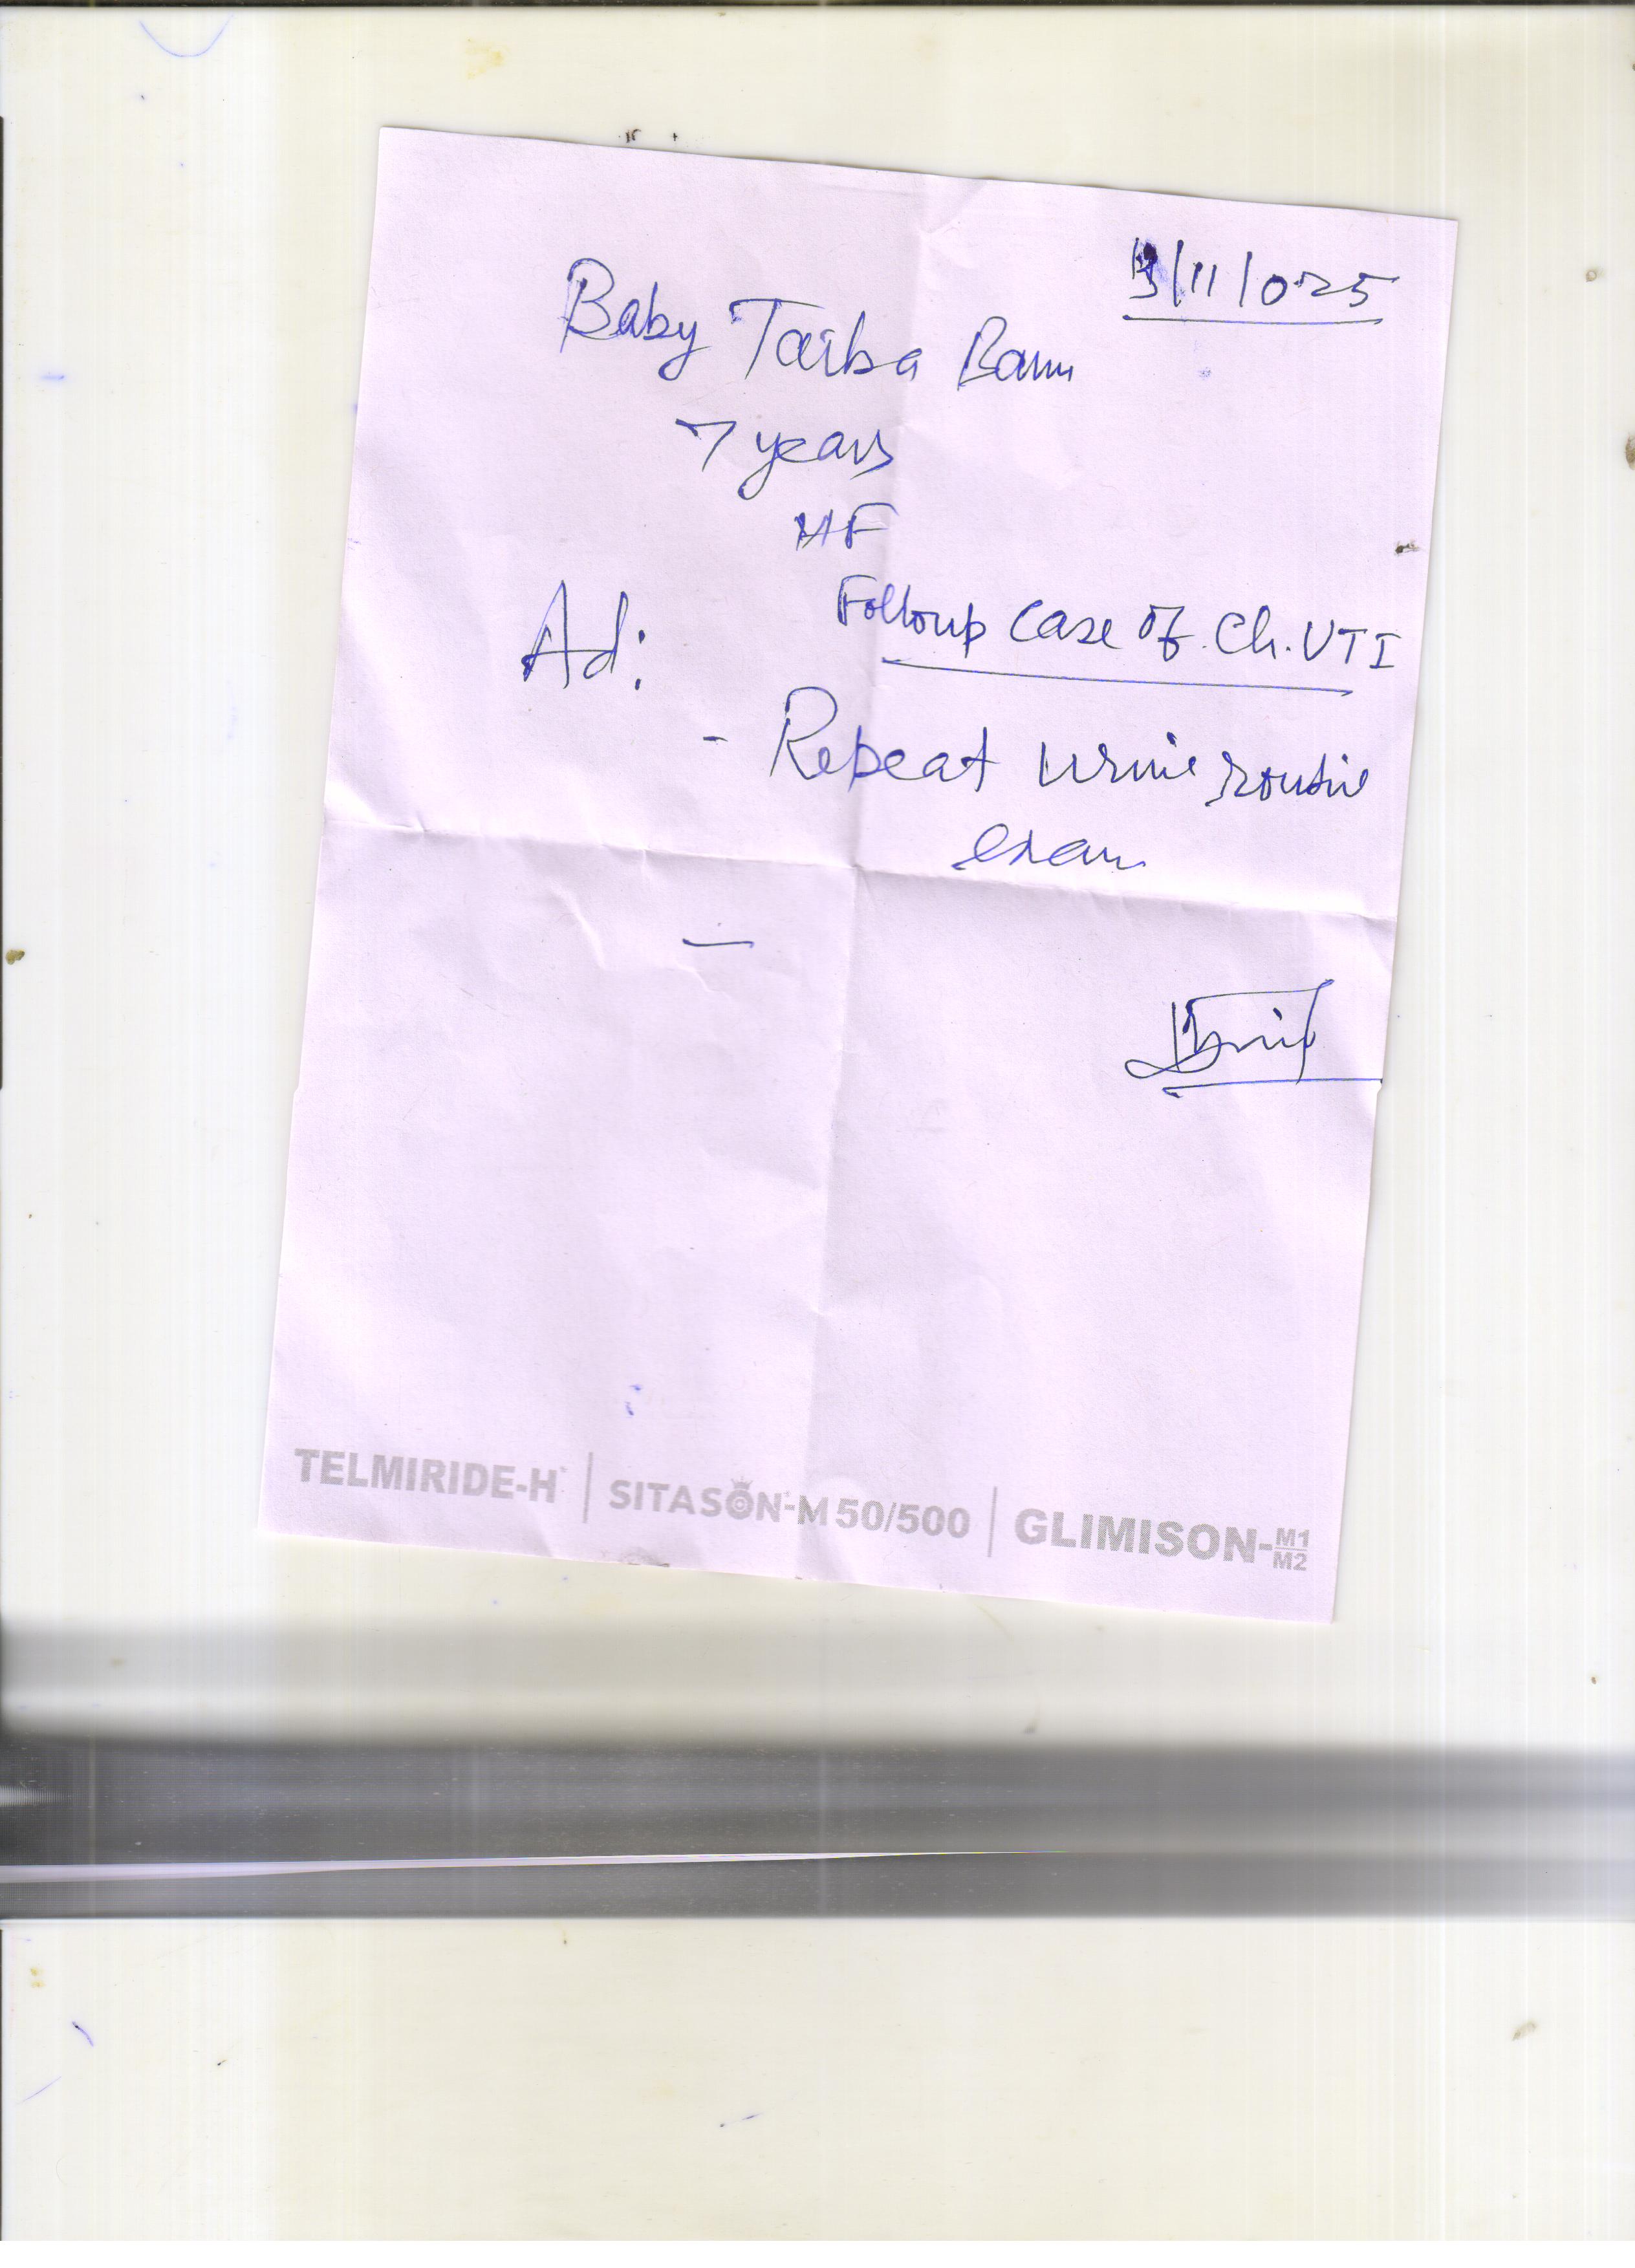 3/11/025
Baby Taiba Banu
7 years
MF
Folloup Case of Ch. UTI
Ad:
- Repeat urine routine
exam
—
TELMIRIDE-H | SITASON-M 50/500 | GLIMISON-M1/M2